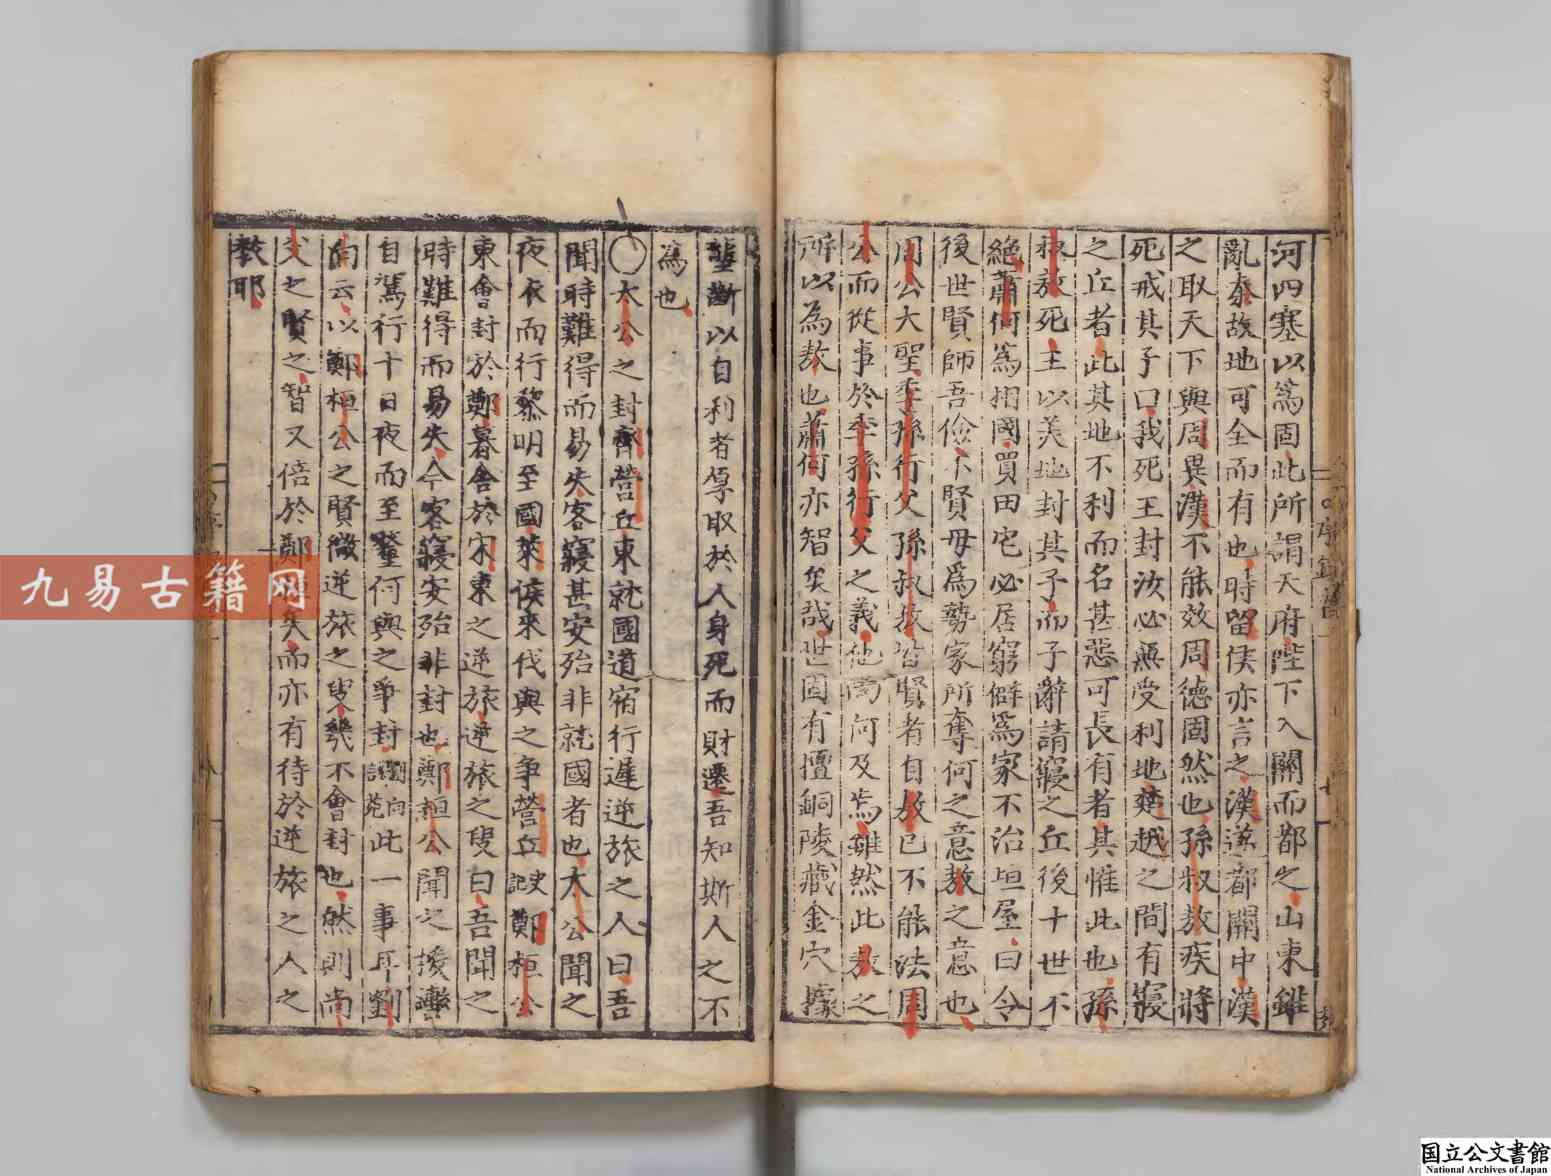 河四塞以爲固此所謂天府陛下入關而都之山東雖
亂秦故地可全而有也時留侯亦言之漢遂都關中漢
之取天下與周異漢不能效周德固然也孫叔敖疾將
死戒其子曰我死王封汝必無受利地楚越之間有寢
之丘者此其地不利而名甚惡可長有者其惟此也孫
叔敖死王以美地封其子而子辭請寢之丘後十世不
絶蕭何爲相國買田宅必居窮僻爲家不治垣屋曰令
後世賢師吾儉不賢毋爲勢家所奪何之意敖之意也
周公大聖季孫行父孫叔敖皆賢者自敖已不能法周
公而從事於季孫行父之義他尚何及焉雖然此敖之
所以為敖也蕭何亦智矣哉世固有擅銅陵藏金穴據
壟斷以自利者厚取於人身死而財遷吾知斯人之不
爲也
〇太公之封齊營丘東就國道宿行遲逆旅之人曰吾
聞時難得而易失客寢甚安殆非就國者也太公聞之
夜衣而行黎明至國萊侯來伐與之爭營丘史記鄭桓公
東會封於鄭暮舍於宋東之逆旅逆旅之叟曰吾聞之
時難得而易失今客寢安殆非封也鄭桓公聞之援轡
自駕行十日夜而至釐何與之爭封劉向説苑此一事耳劉
向云以鄭桓公之賢微逆旅之叟幾不會封也然則尚
父之賢之智又倍於鄭矣而亦有待於逆旅之人之
教耶
九易古籍网
国立公文書館
National Archives of Japan